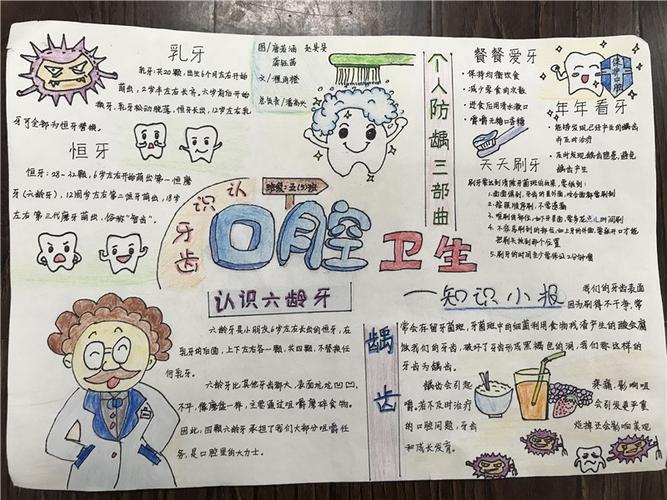 乳牙
乳牙:共20颗,出生6个月左右开始
萌出,2岁半左右长齐,六岁前后开始
换牙,乳牙松动脱落,恒牙长出,12岁左右乳
牙可全部为恒牙替换。
恒牙
恒牙:28-32颗,6岁左右开始萌出第一恒磨
牙(六龄牙),12周岁左右第二恒牙萌出,18岁
左右第三代磨牙萌出,俗称"智齿"。
图/
文/
个人防龋三部曲
餐餐爱牙
保持均衡饮食
减少零食的次数
进食后用清水漱口
嚼嚼无糖口香糖
保护口腔
年年看牙
能够发现已经产生的龋齿
并及时治疗
及时发现龋齿隐患,避免
龋齿产生
天天刷牙
刷牙需达到清除牙菌斑的效果,需做到:
1.面面俱到,牙齿的里外面,咬合面都需刷到
2.按照顺序刷,不零遗漏
4.不容易刷到的部位,如上牙的外面,需张开口才能
把刷大放到那个位置
5.刷牙的时间至少需保证2分钟哦
认识牙齿
班级:五(5)班
口腔卫生
知识小报
认识六龄牙
六龄牙是小朋友6岁左右长出的恒牙,在
乳牙的后面,上下左右各一颗,共四颗,不替换任
何乳牙。
六龄牙比其他牙齿都大,表面坑坑凹凹,
不平,像磨盘一样,主要通过咀嚼磨碎食物。
因此,四颗六龄牙承担了我们大部分咀嚼任
务,是口腔里的大力士。
龋齿
我们的牙齿表面
因为刷得不干净,常
常会存留牙菌斑,牙菌斑中的细菌利用食物残渣产生的酸会腐
蚀我们的牙齿,破坏了牙齿形成黑褐色的洞,我们称这样的
牙齿为龋齿。
龋齿会引起
疼痛,影响咀
嚼。若不及时治疗
会引发更严重
的口腔问题,牙齿
烂掉还会影响美观
和成长发育。